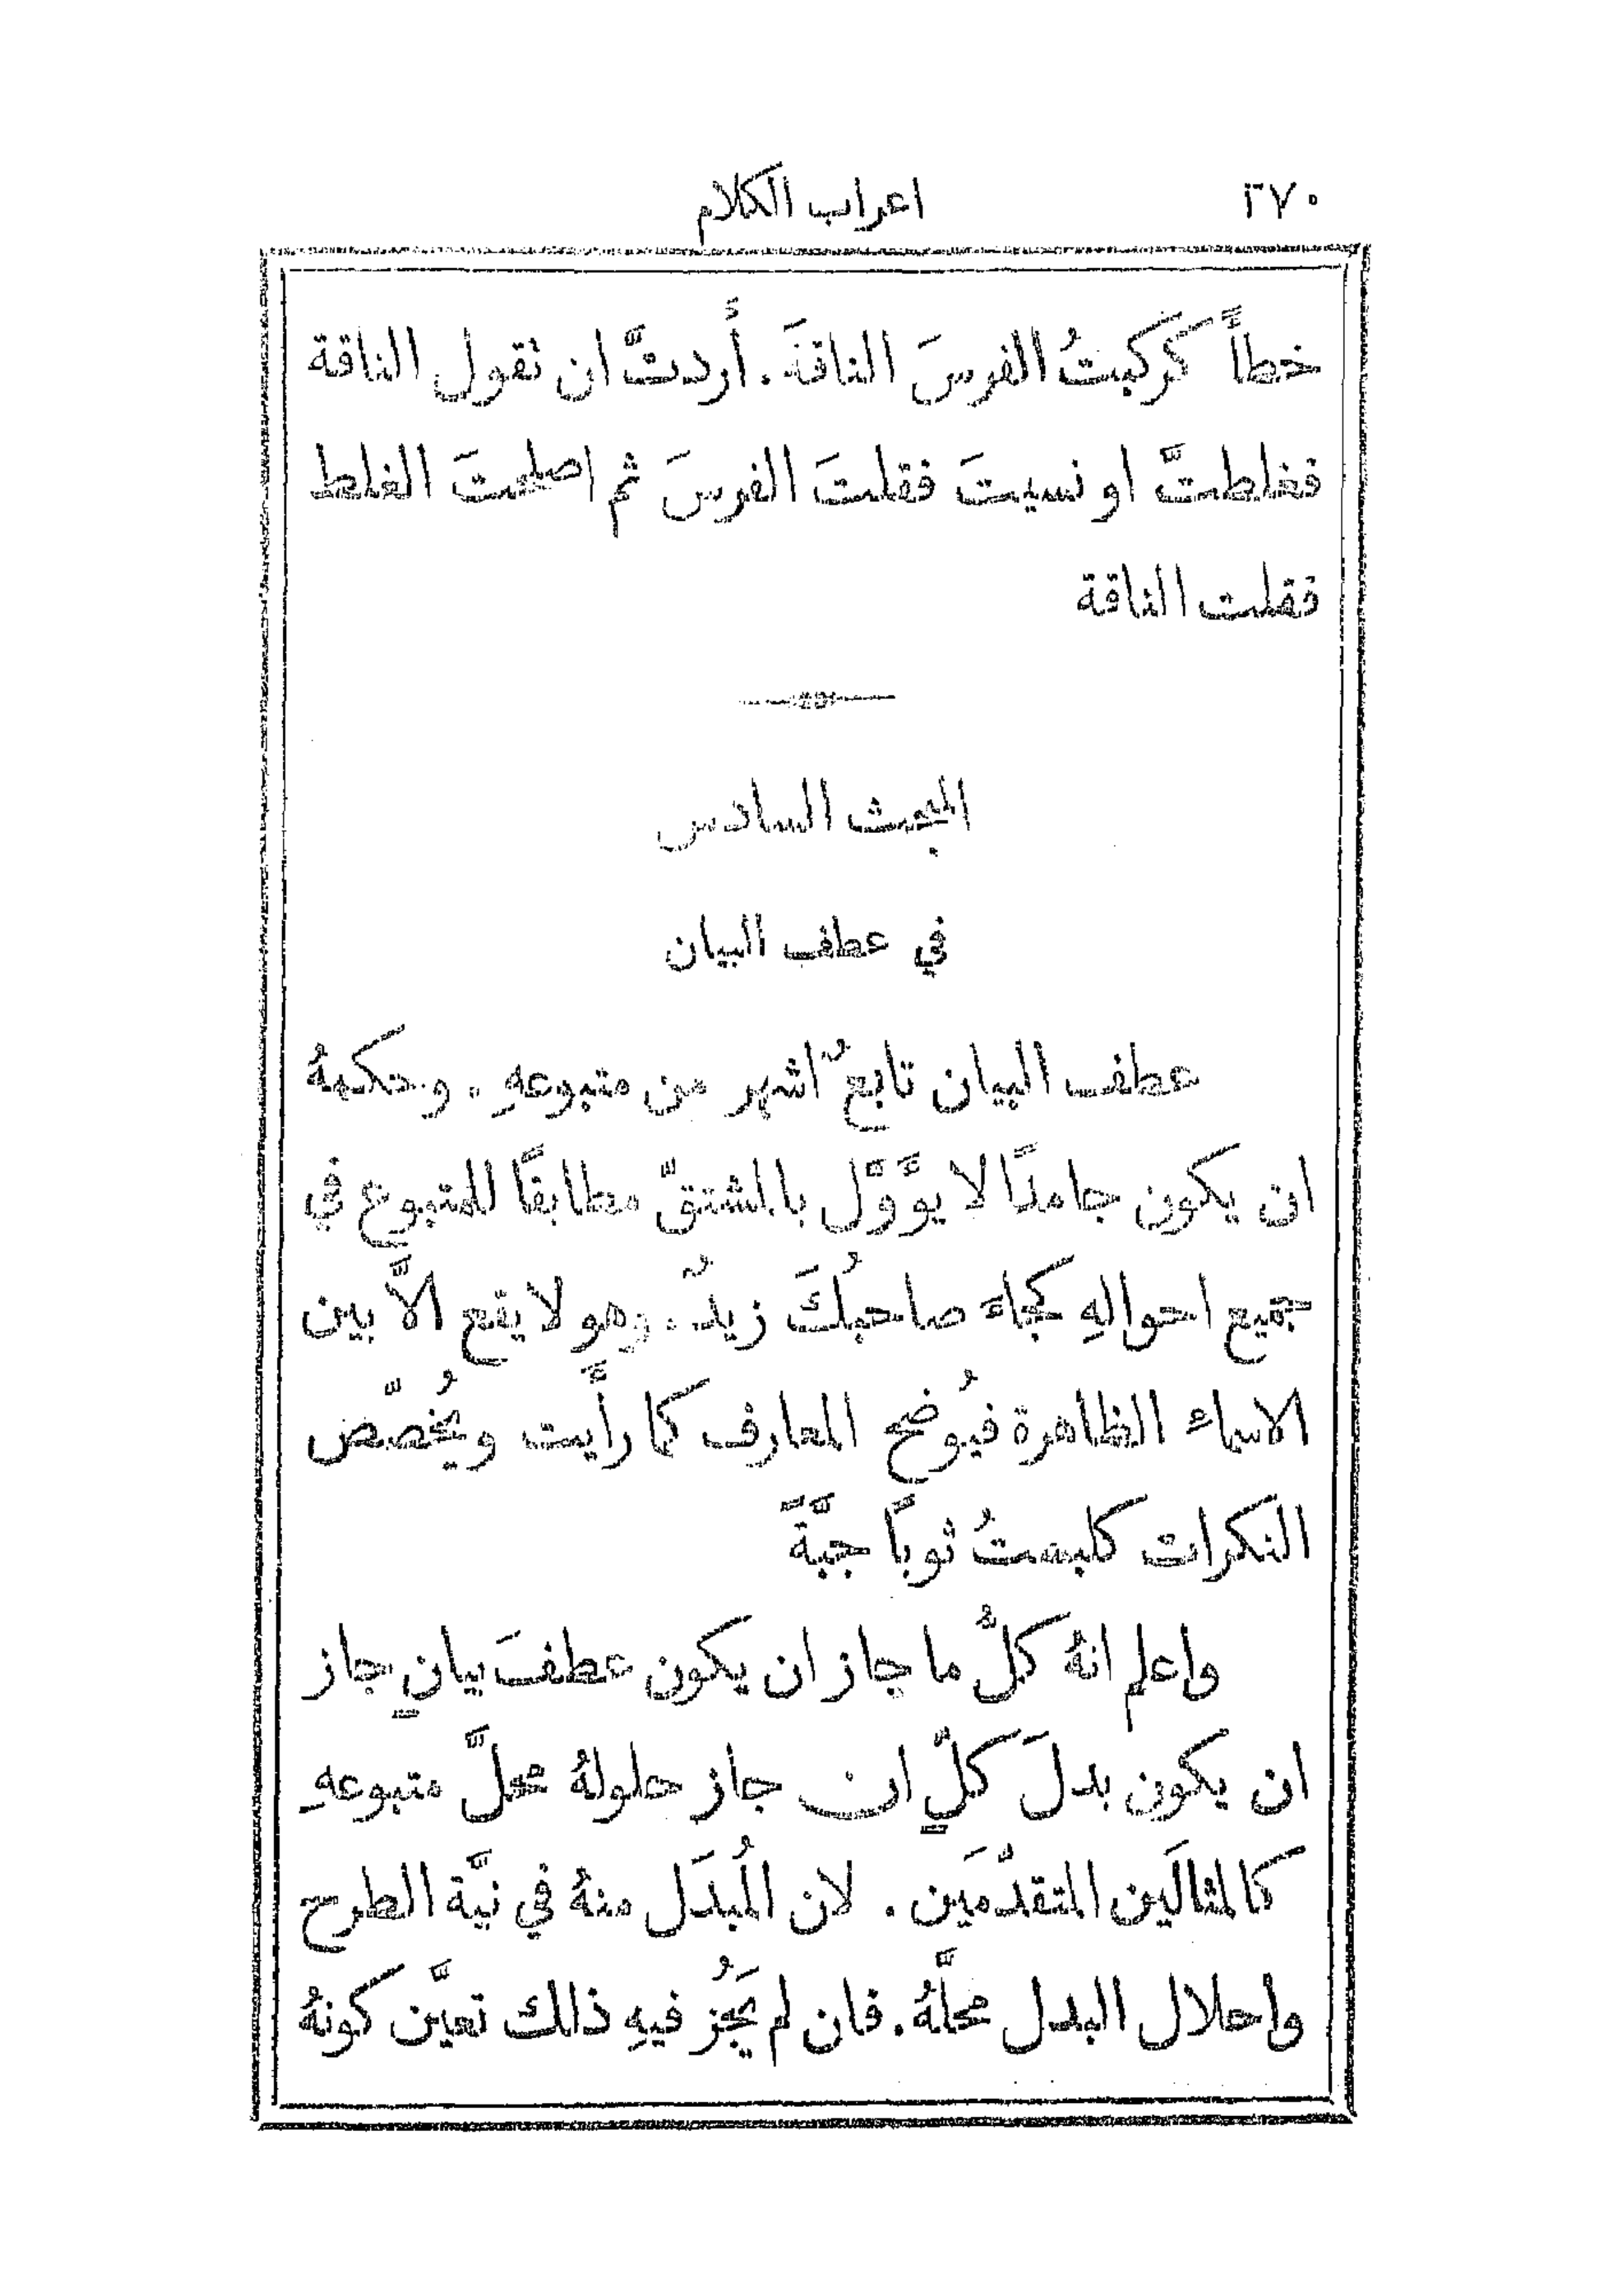 ٢٧٠ اعراب الكلام
خطأً كركبتُ الفرسَ الناقةَ. أَردتَّ ان تقول الناقة
فغلطتَّ او نسيتَ فقلتَ الفرسَ ثم اصلحتَ الغلط
فقلت الناقة
المبحث السادس
في عطف البيان
عطف البيان تابعٌ اشهر من متبوعهِ. وحكمهُ
ان يكون جامدًا لا يؤَوَّل بالمشتقّ مطابقًا للمتبوع في
جميع احوالهِ كجاءَ صاحبُكَ زيدٌ. وهو لا يقع الاَّ بين
الاسماء الظاهرة فيُوضح المعارف كما رأَيت ويُخصّص
النكرات كلبستُ ثوبًا جبَّةً
واعلم انهُ كلُّ ما جاز ان يكون عطفَ بيانٍ جاز
ان يكون بدلَ كلٍّ ان جاز حلولهُ محلَّ متبوعهِ
كالمثالَين المتقدّمَين. لان المُبدَل منهُ في نيَّة الطرح
واحلال البدل محلَّهُ. فان لم يَجُز فيهِ ذلك تعيَّن كونهُ